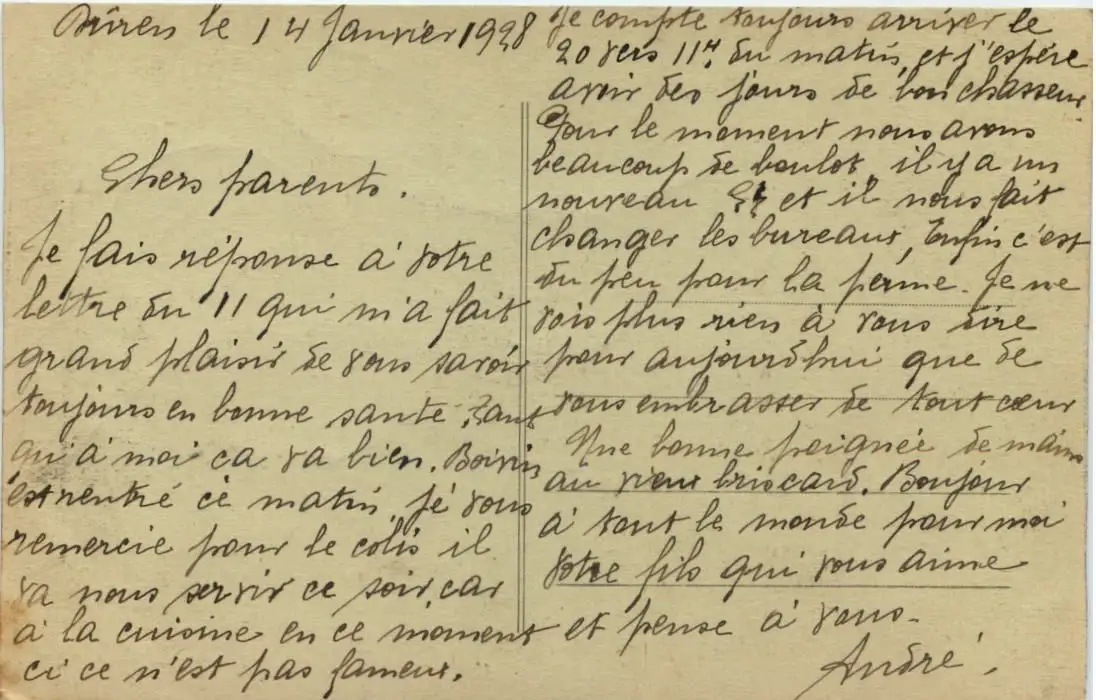 Düren le 14 Janvier 1928
Chers parents.
Je fais réponse à votre
lettre du 11 qui m'a fait
grand plaisir de vous savoir
toujours en bonne santé. Tant
qu'à moi ca va bien. Boivin
est rentré ce matin, je vous
remercie pour le colis il
va nous servir ce soir, car
à la cuisine en ce moment
ci ce n'est pas fameux.
Je compte toujours arriver le
20 vers 11H. du matin, et j'espère
avoir des jours de bon chasseur
Pour le moment nous avons
beaucoup de boulot, il y a un
nouveau et il nous fait
changer les bureaux, Enfin c'est
du peu pour la perme. Je ne
vois plus rien à vous dire
pour aujourdhui que de
vous embrasser de tout cœur
Une bonne poignée de mains
au vieux briscard. Bonjour
à tout le monde pour moi
votre fils qui vous aime
et pense à vous.
André.